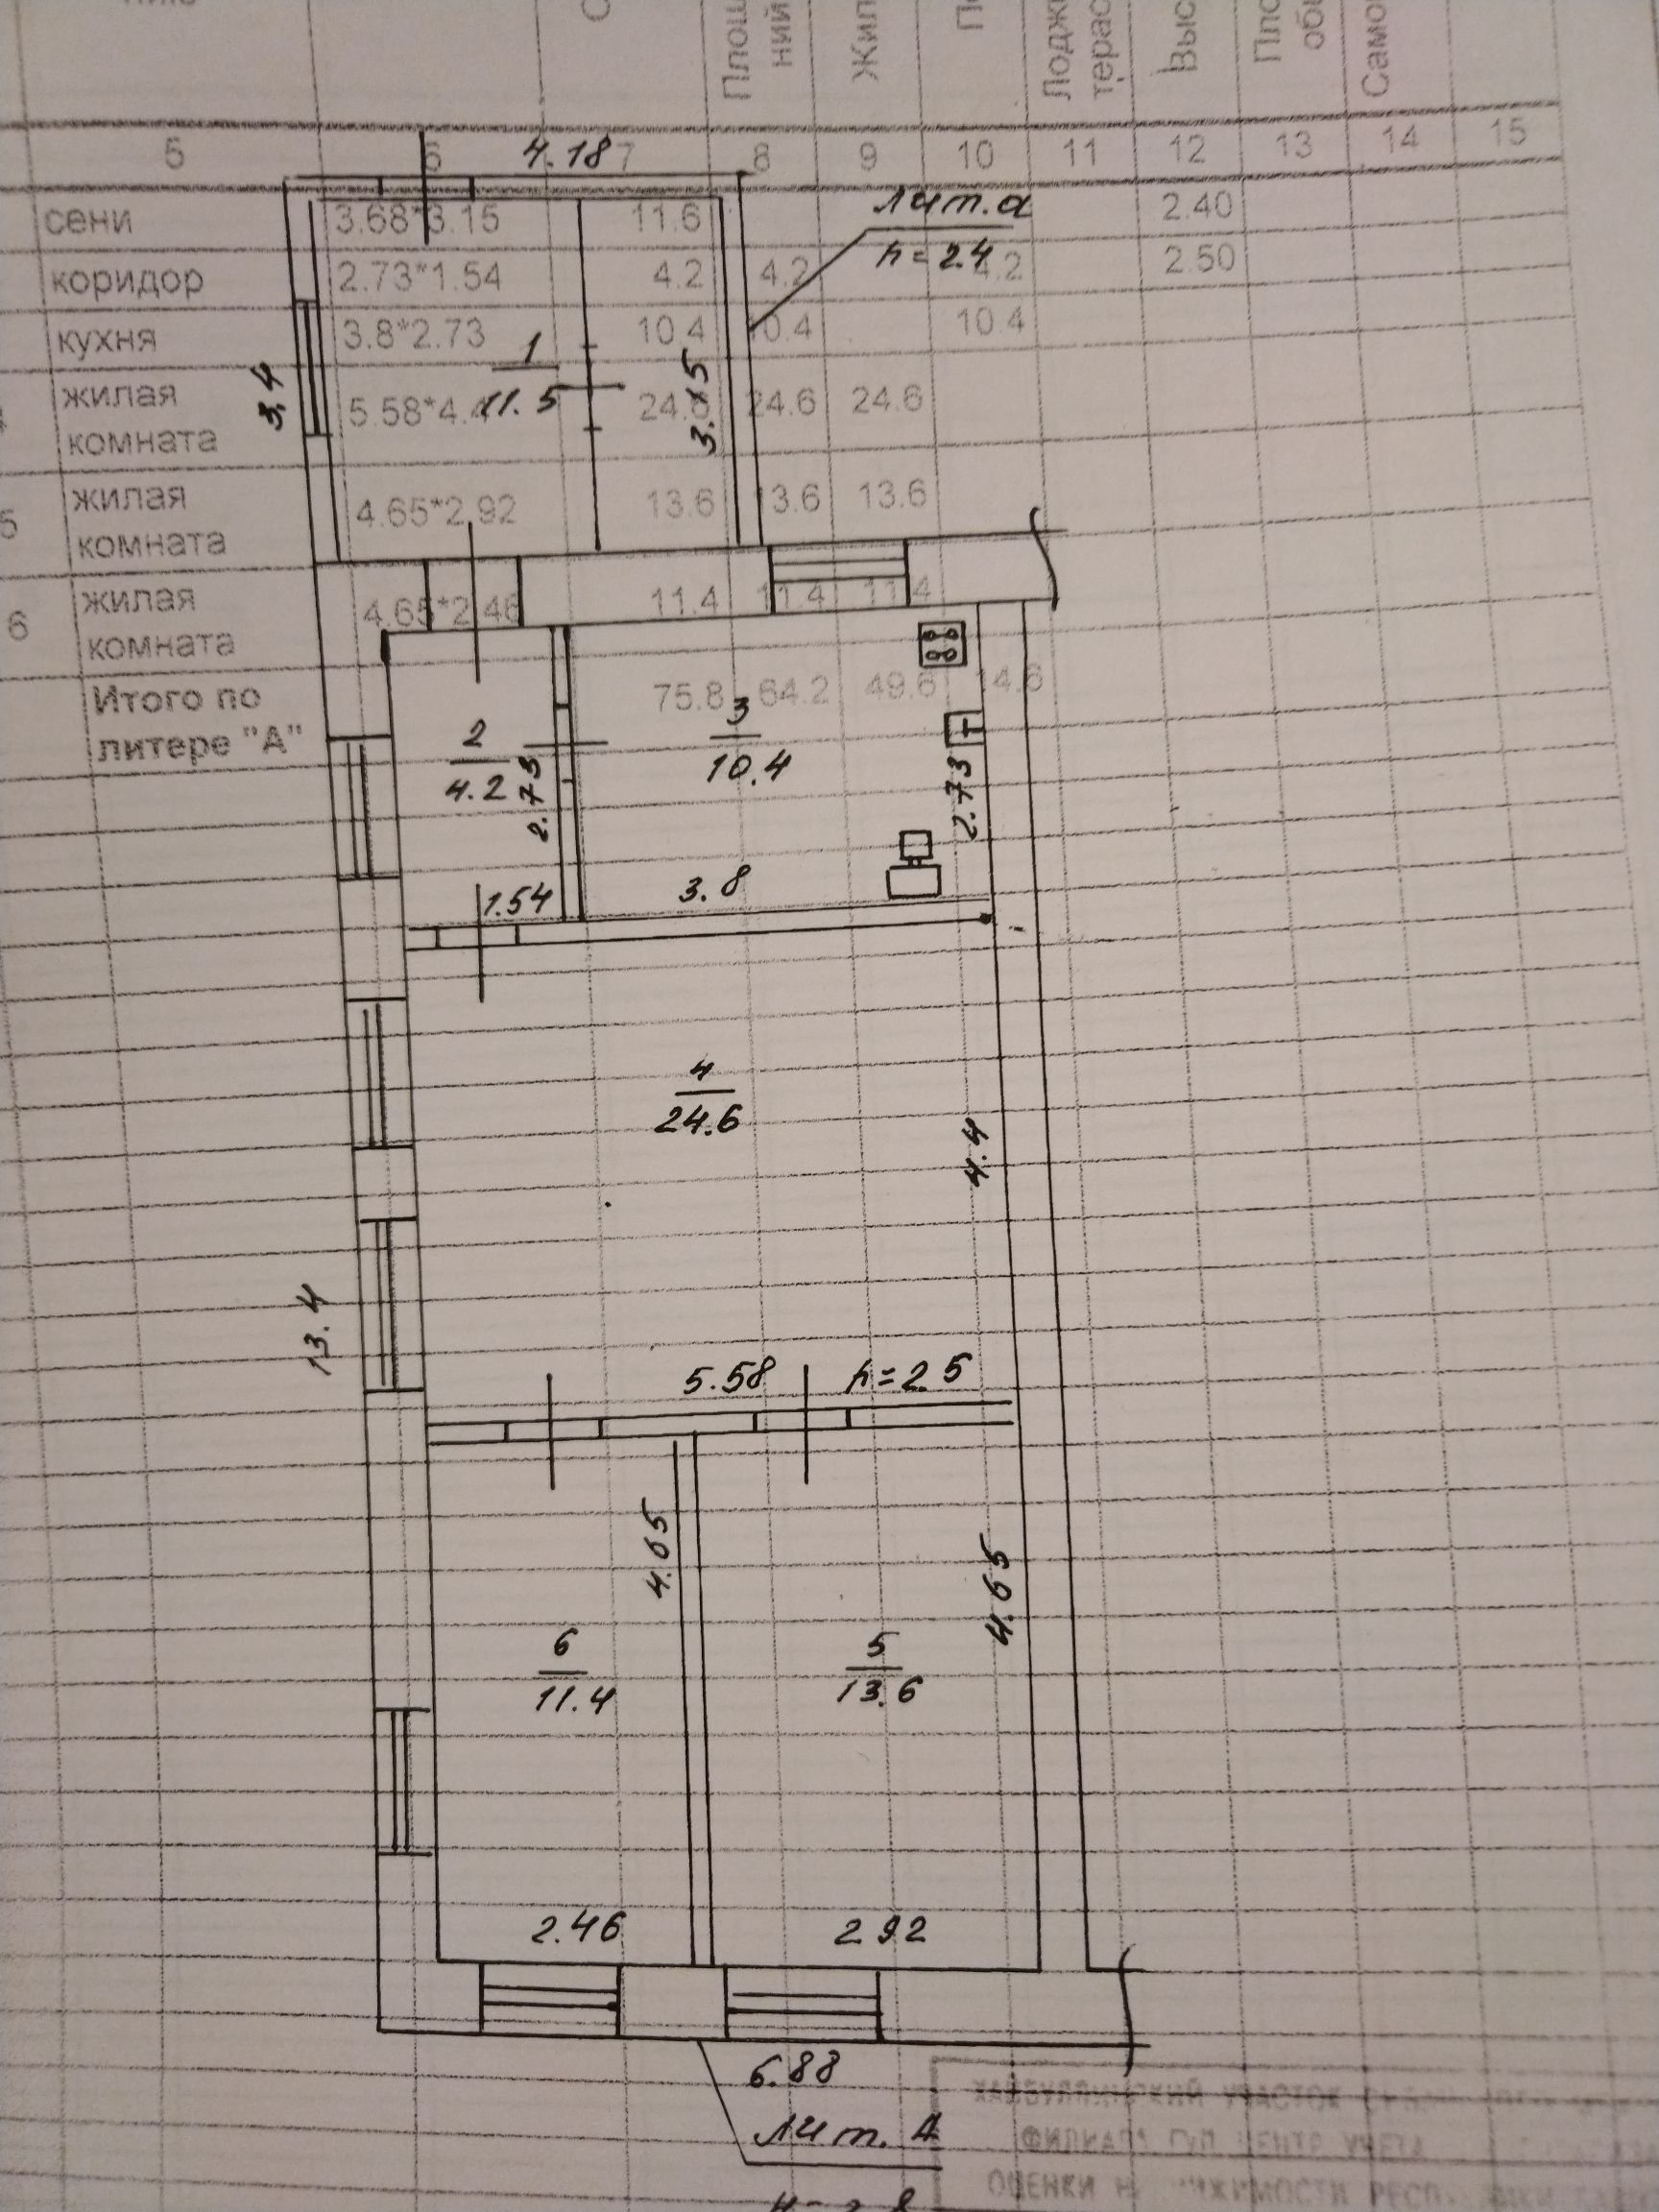 5 6 7 8 9 10 11 12 13 14 15
4.18
сени 3.68*3.15 11.6 2.40
лит. а
h=2.4
коридор 2.73*1.54 4.2 4.2 4.2 2.50
кухня 3.8*2.73 10.4 10.4 10.4
1
11.5
3.4
3.15
жилая
комната 5.58*4.4 24.6 24.6 24.6
5 жилая
комната 4.65*2.92 13.6 13.6 13.6
6 жилая
комната 4.65*2.46 11.4 11.4 11.4
Итого по
литере "А" 75.8 64.2 49.6 14.6
2
4.2
2.73
3
10.4
2.73
1.54
3.8
4
24.6
4.4
13.4
5.58
h=2.5
4.65
4.65
6
11.4
5
13.6
2.46
2.92
6.88
лит. А
УЧАСТОК
ЦЕНТР УЧЕТА
ОЦЕНКИ